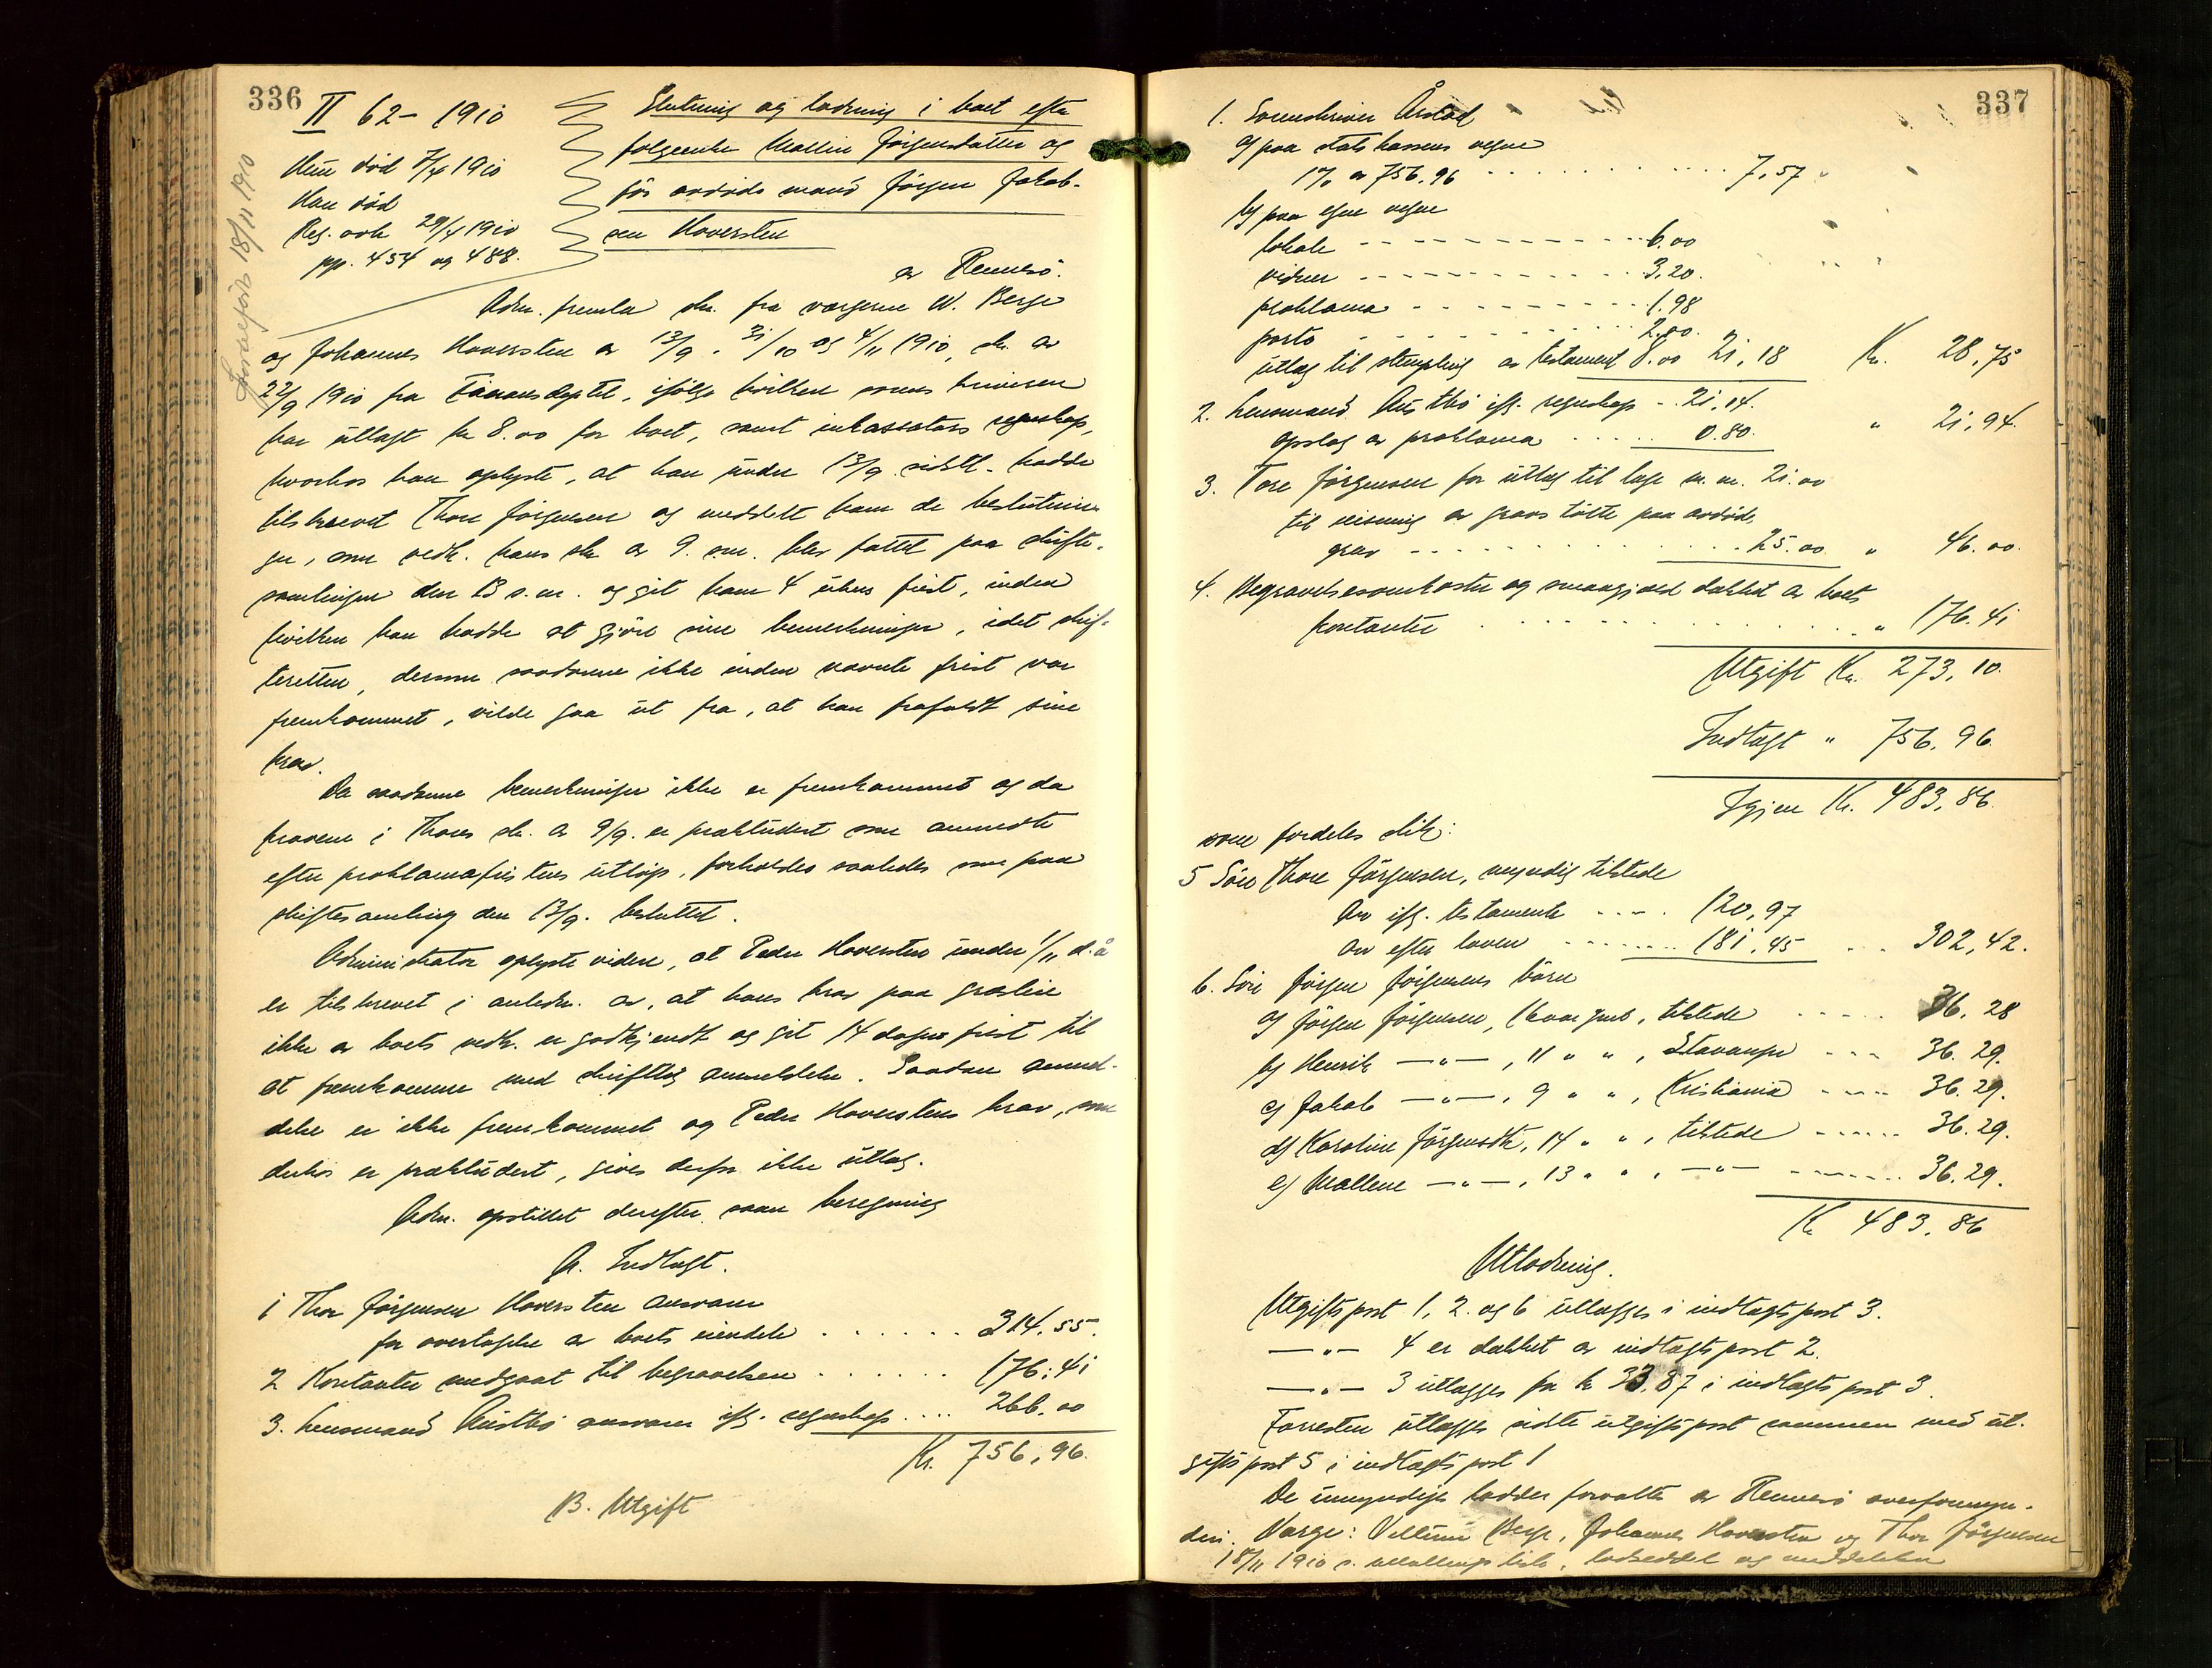 336
II 62 - 1910
Hun død 7/4 1910
Han død
Reg. prk 29/4 1910
pp. 454 og 488.
18/11 1910
Slutning og lodning i boet efter
følgeenke Mallin Jörgensdatter og
før avdøde mand Jörgen Jakob-
sen Hoversten
av Rennesö.
Adm. fremla skr. fra vergerne W. Berge
og Johannes Hoversten av 13/9 - 31/10 og 4/11 1910, skr. av
22/9 1910 fra Finansdeptet, ifölge hvilken sorenskriveren
har utlagt kr 8.00 for boet, samt inkassators regnskap,
hvorhos han oplyste, at han under 13/9 sidstl. hadde
tilskrevet Thore Jörgensen og meddelt ham de beslutnin-
ger, som vedk. hans skr. av 9. s.m. blev fattet paa skifte-
samlingen den 13 s.m. og git ham 4 ukers frist, inden
hvilken han hadde at gjöre sine bemerkninger, idet skif-
teretten, dersom saadanne ikke inden nævnte frist var
fremkommet, vilde gaa ut fra, at han frafaldt sine
krav.
Da saadanne bemerkninger ikke er fremkommet og da
kravene i Thores skr. av 9/9. er prækludert som anmeldte
efter proklamafristens utlöp, forholdes saaledes som paa
skiftesamling den 13/9. besluttet.
Administrator oplyste videre, at Peder Hoversten under 1/11 d.å
er tilskrevet i anledn. av, at hans krav paa graslin
ikke av boets vedk. er godkjendt og git 14 dages frist til
at fremkomme med skriftlig anmeldelse. Saadan anmel-
delse er ikke fremkommet og Peder Hoverstens krav, som
derhos er prækludert, gives derfor ikke utlæg.
Adm. opstillet derefter saan beregning
A. Indtægt.
1 Thore Jörgensen Hoversten ansvarer
for overtagelse av boets eiendele . . . . . . 314.55.
2 Kontanter medgaat til begravelsen . . . . . . 176.41
3. Lensmand Austbö ansvarer iflg. regnskap . . . . 266.00
Kr. 756,96.
B. Utgift
337
1. Sorenskriver Årstad
a) paa statskassens vegne
1% av 756,96 . . . . . . . . . . 7,57
b) paa egne vegne
lokale - - - - - - - - - - 6.00
vidner - - - - - - - - - - 3,20.
proklama - - - - - - - - 1.98
porto . . . . . . . . . . 2.00.
utlæg til stempling av testament 8.00 21,18 Kr. 28,75
2. Lensmand Austbö iflg. regnskap - 21,14.
opslag av proklama . . . . . 0.80. " 21,94.
3. Tore Jörgensen for utlæg til læge m.m. 21.00
til reisning av gravstötte paa avdöde,
grav - . . . . . . . . . 25.00 " 46.00.
4. Begravelsesomkostn. og smaagjæld dækket av boets
kontanter . . . . . . . . . . " 176.41
Utgift Kr. 273,10.
Indtægt " 756,96.
Igjen Kr. 483,86.
som fordeles slik:
5 Sön Thore Jörgensen, myndig tilstede
Arv iflg. testamente - - - . 120,97
Arv efter loven . . . . . . . . 181,45 . . . 302,42.
6. Sön Jörgen Jörgensens börn
a) Jörgen Jörgensen, 16 aar gml., tilstede . . . . . 36.28
b) Henrik —"—, 11 " " , Stavanger - - - 36.29.
c) Jakob —"—, 9 " " , Kristiania - - - - 36.29.
d) Karoline Jörgensdtr., 14 " " , tilstede . . . . . . 36.29.
e) Mallene —"—, 13 " " , —"— - - . . . . . . 36.29.
Kr 483,86
Utlodning.
Utgiftspost 1, 2. og 6 utlægges i indtægtspost 3.
—"— 4 er dækket av indtægtspost 2.
—"— 3 utlægges for kr 33,87 i indtægtspost 3.
Forresten utlægges sidste utgiftspost sammen med ut-
giftspost 5 i indtægtspost 1
De umyndiges lodder forvaltes av Rennesö overformyn-
deri. Verge: Vellum Berge, Johannes Hoversten og Thor Jörgensen
18/11 1910 s. utlodningsliste, lodseddel og meddelelse